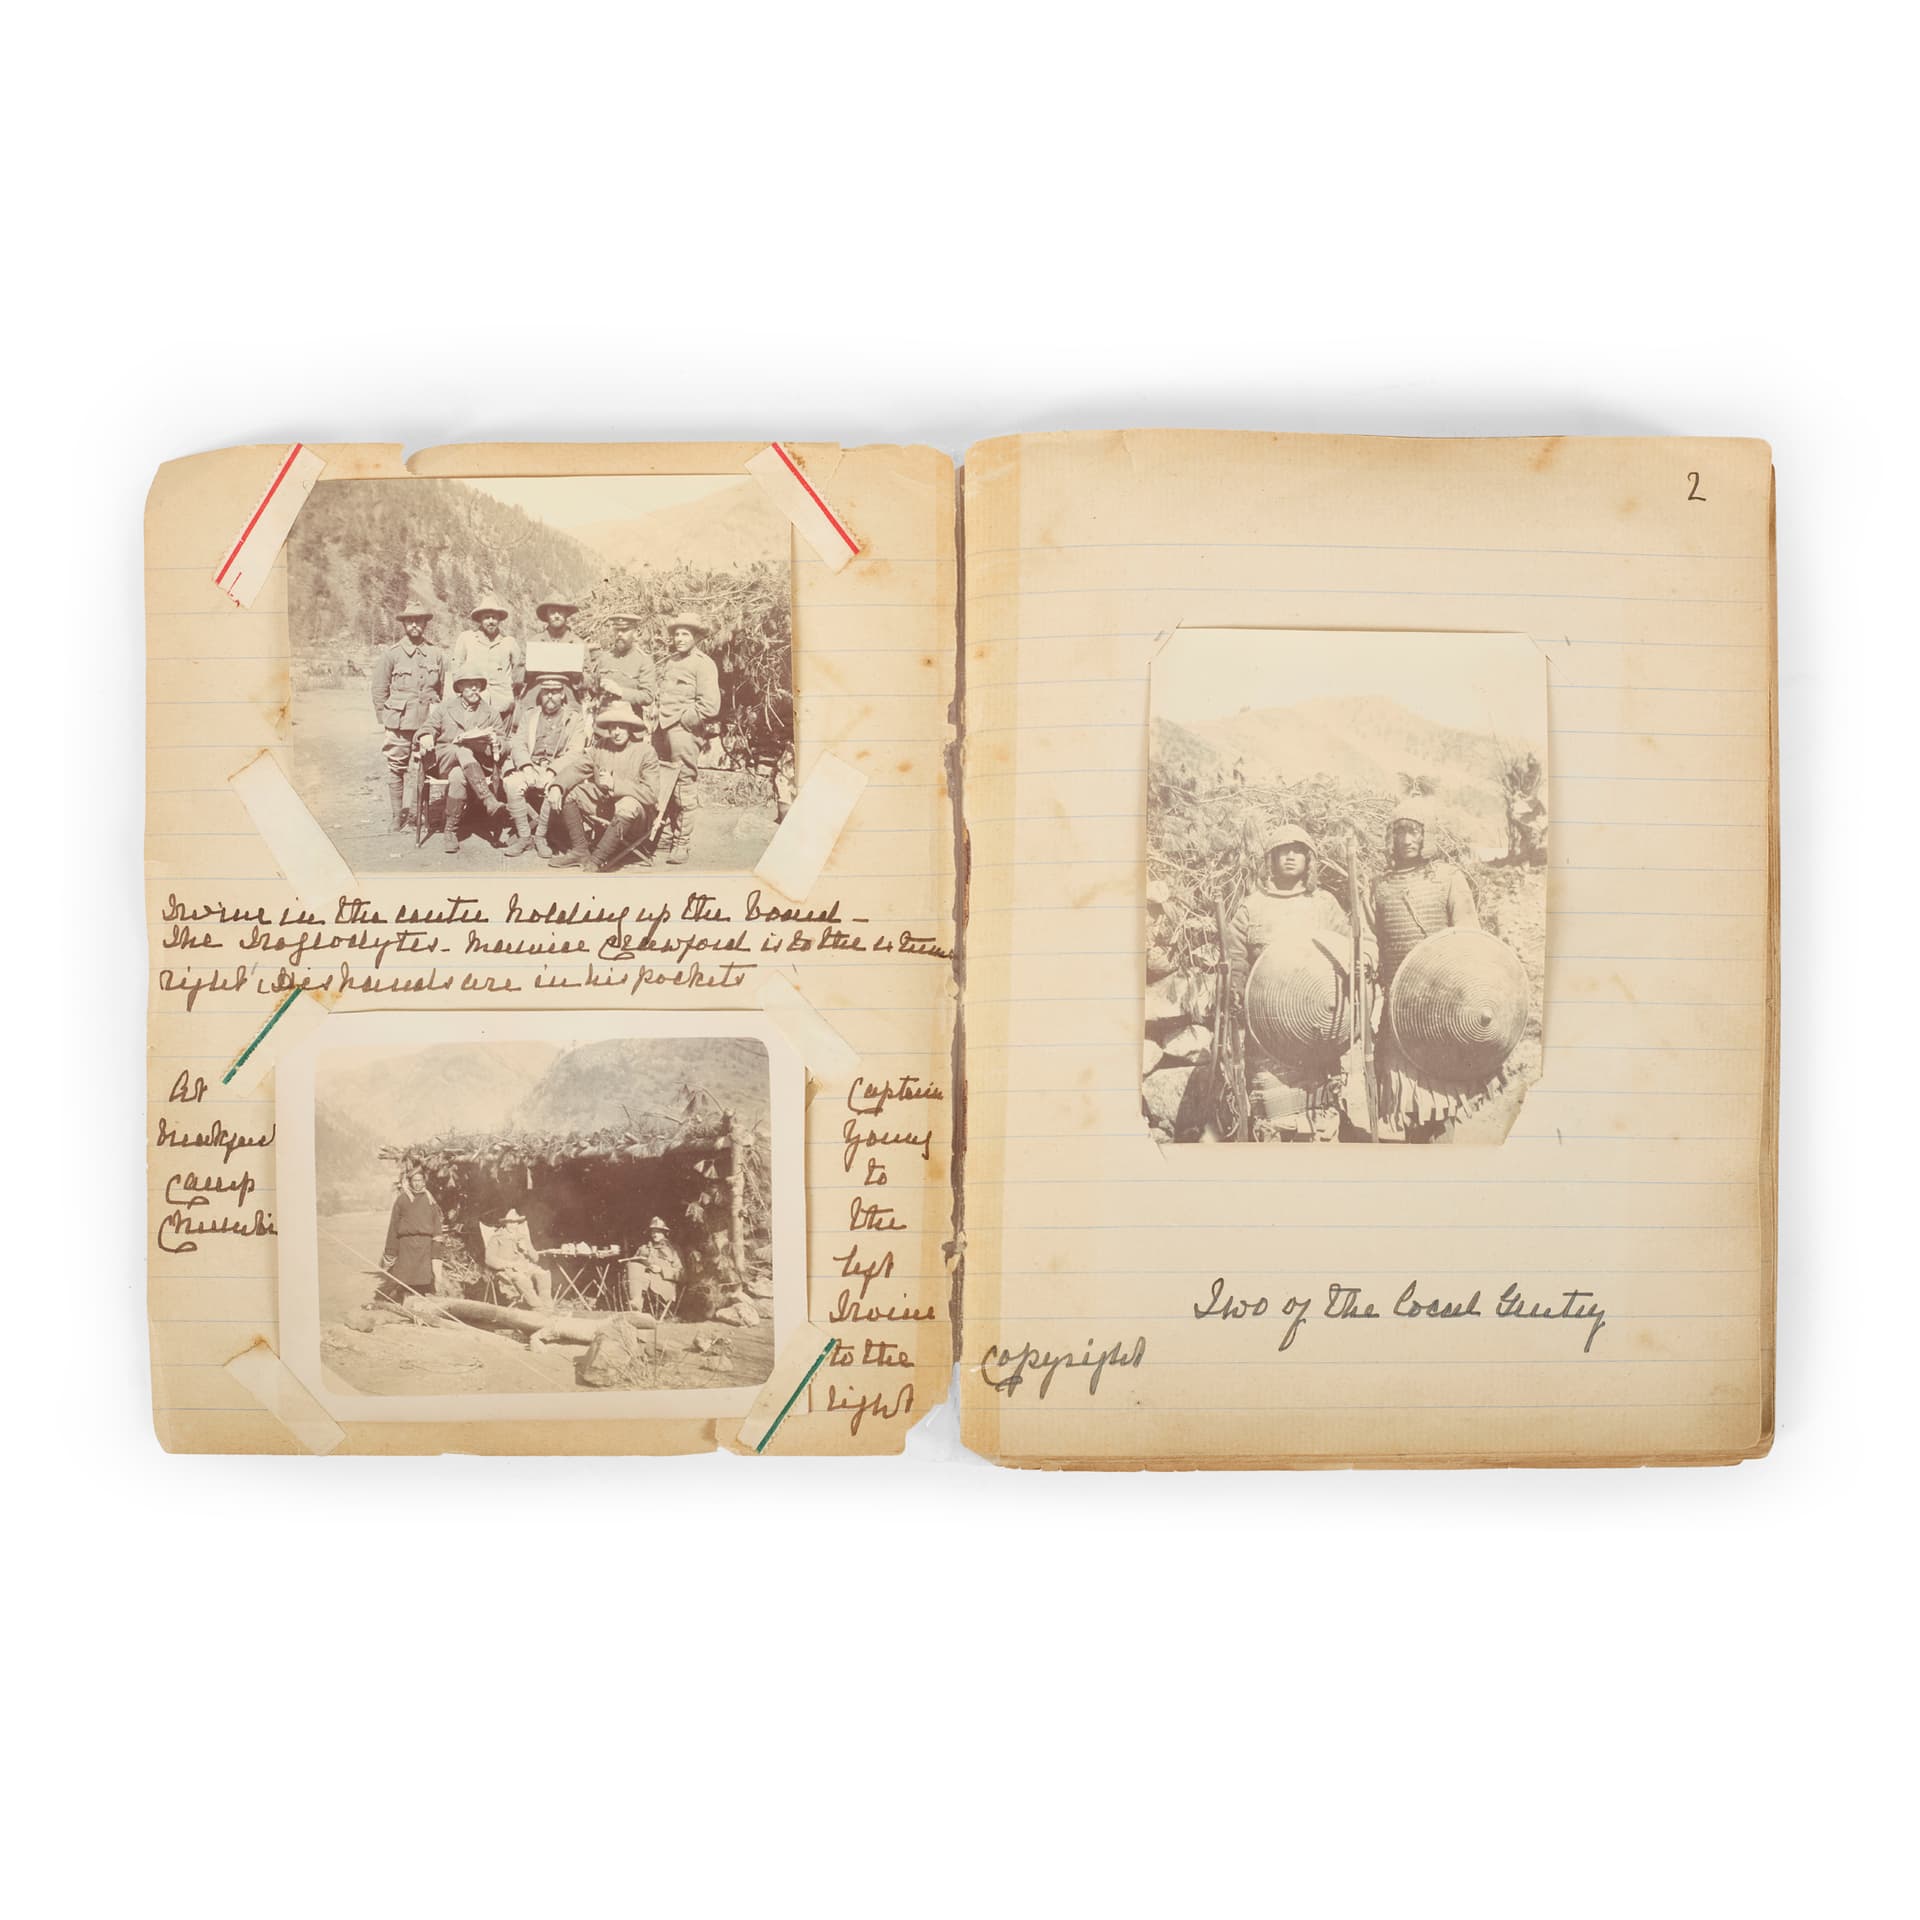 Irvine in the centre holding up the board –
The Troglodytes – Maurice Crawford is to the extreme
right, His hands are in his pockets
At
camp
Chumbi
Captain
Young
to
the
left
Irvine
to the
right
2
Two of the local Gentry
Copyright